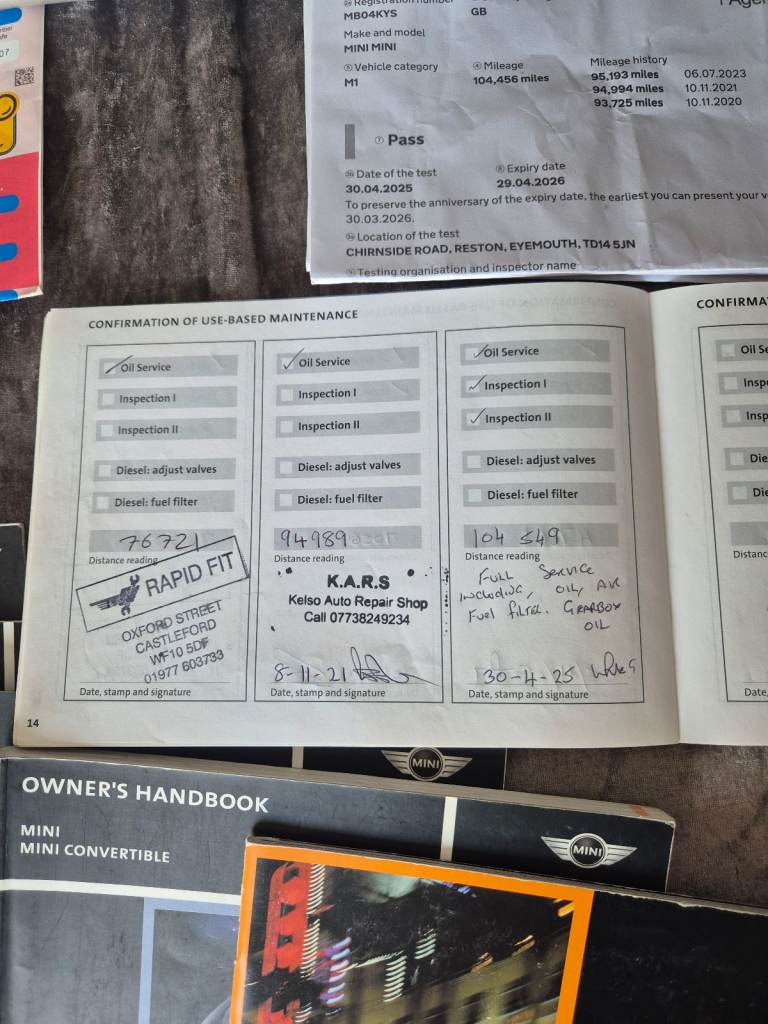 07
Registration number
MB04KYS
GB
Make and model
MINI MINI
Vehicle category
M1
Mileage
104,456 miles
Mileage history
95,193 miles 06.07.2023
94,994 miles 10.11.2021
93,725 miles 10.11.2020
Pass
Date of the test
30.04.2025
Expiry date
29.04.2026
To preserve the anniversary of the expiry date, the earliest you can present your v
30.03.2026.
Location of the test
CHIRNSIDE ROAD, RESTON, EYEMOUTH, TD14 5JN
Testing organisation and inspector name
CONFIRMATION OF USE-BASED MAINTENANCE
Oil Service
Inspection I
Inspection II
Diesel: adjust valves
Diesel: fuel filter
76721
Distance reading
RAPID FIT
OXFORD STREET
CASTLEFORD
WF10 5DF
01977 603733
Date, stamp and signature
Oil Service
Inspection I
Inspection II
Diesel: adjust valves
Diesel: fuel filter
94989
Distance reading
K.A.R.S
Kelso Auto Repair Shop
Call 07738249234
8-11-21
Date, stamp and signature
Oil Service
Inspection I
Inspection II
Diesel: adjust valves
Diesel: fuel filter
104 549
Distance reading
FULL SERVICE
INCLUDING, OIL, AIR
FUEL FILTER. GEARBOX
OIL
30-4-25
Date, stamp and signature
14
CONFIRMA
Oil Se
Inspe
Insp
Die
Die
Distanc
Date,
MINI
OWNER'S HANDBOOK
MINI
MINI CONVERTIBLE
MINI